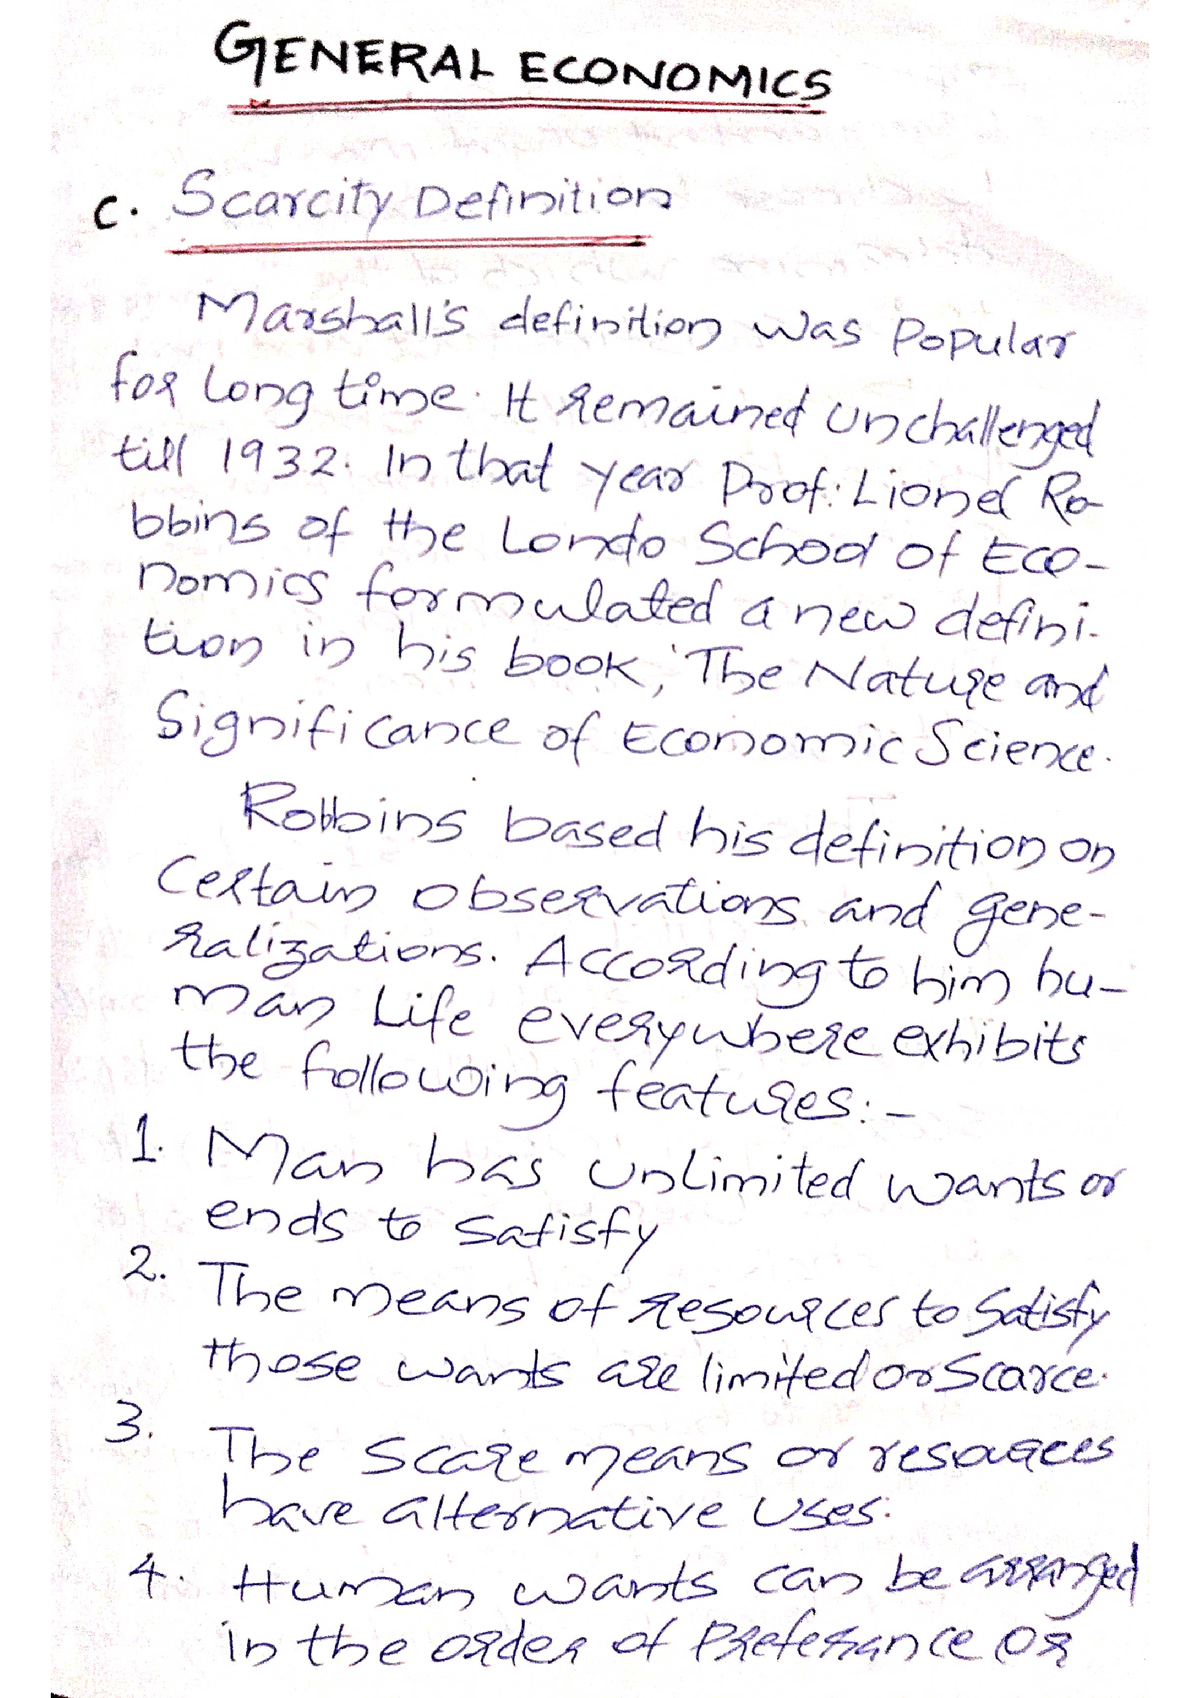 GENERAL ECONOMICS
C. Scarcity Definition
Marshall's definition was Popular
for long time. It remained unchallenged
till 1932. In that year Prof: Lionel Ro-
bbins of the Londo School of Eco-
nomics formulated a new defini-
tion in his book, 'The Nature and
Significance of Economic Science.
Robbins based his definition on
Certain observations and gene-
ralizations. According to him hu-
man Life everywhere exhibits
the following features:-
1. Man has unlimited wants or
ends to satisfy
2. The means of resources to Satisfy
those wants are limited or Scarce.
3. The Scare means or resources
have alternative uses.
4. Human wants can be arranged
in the order of Preferance or